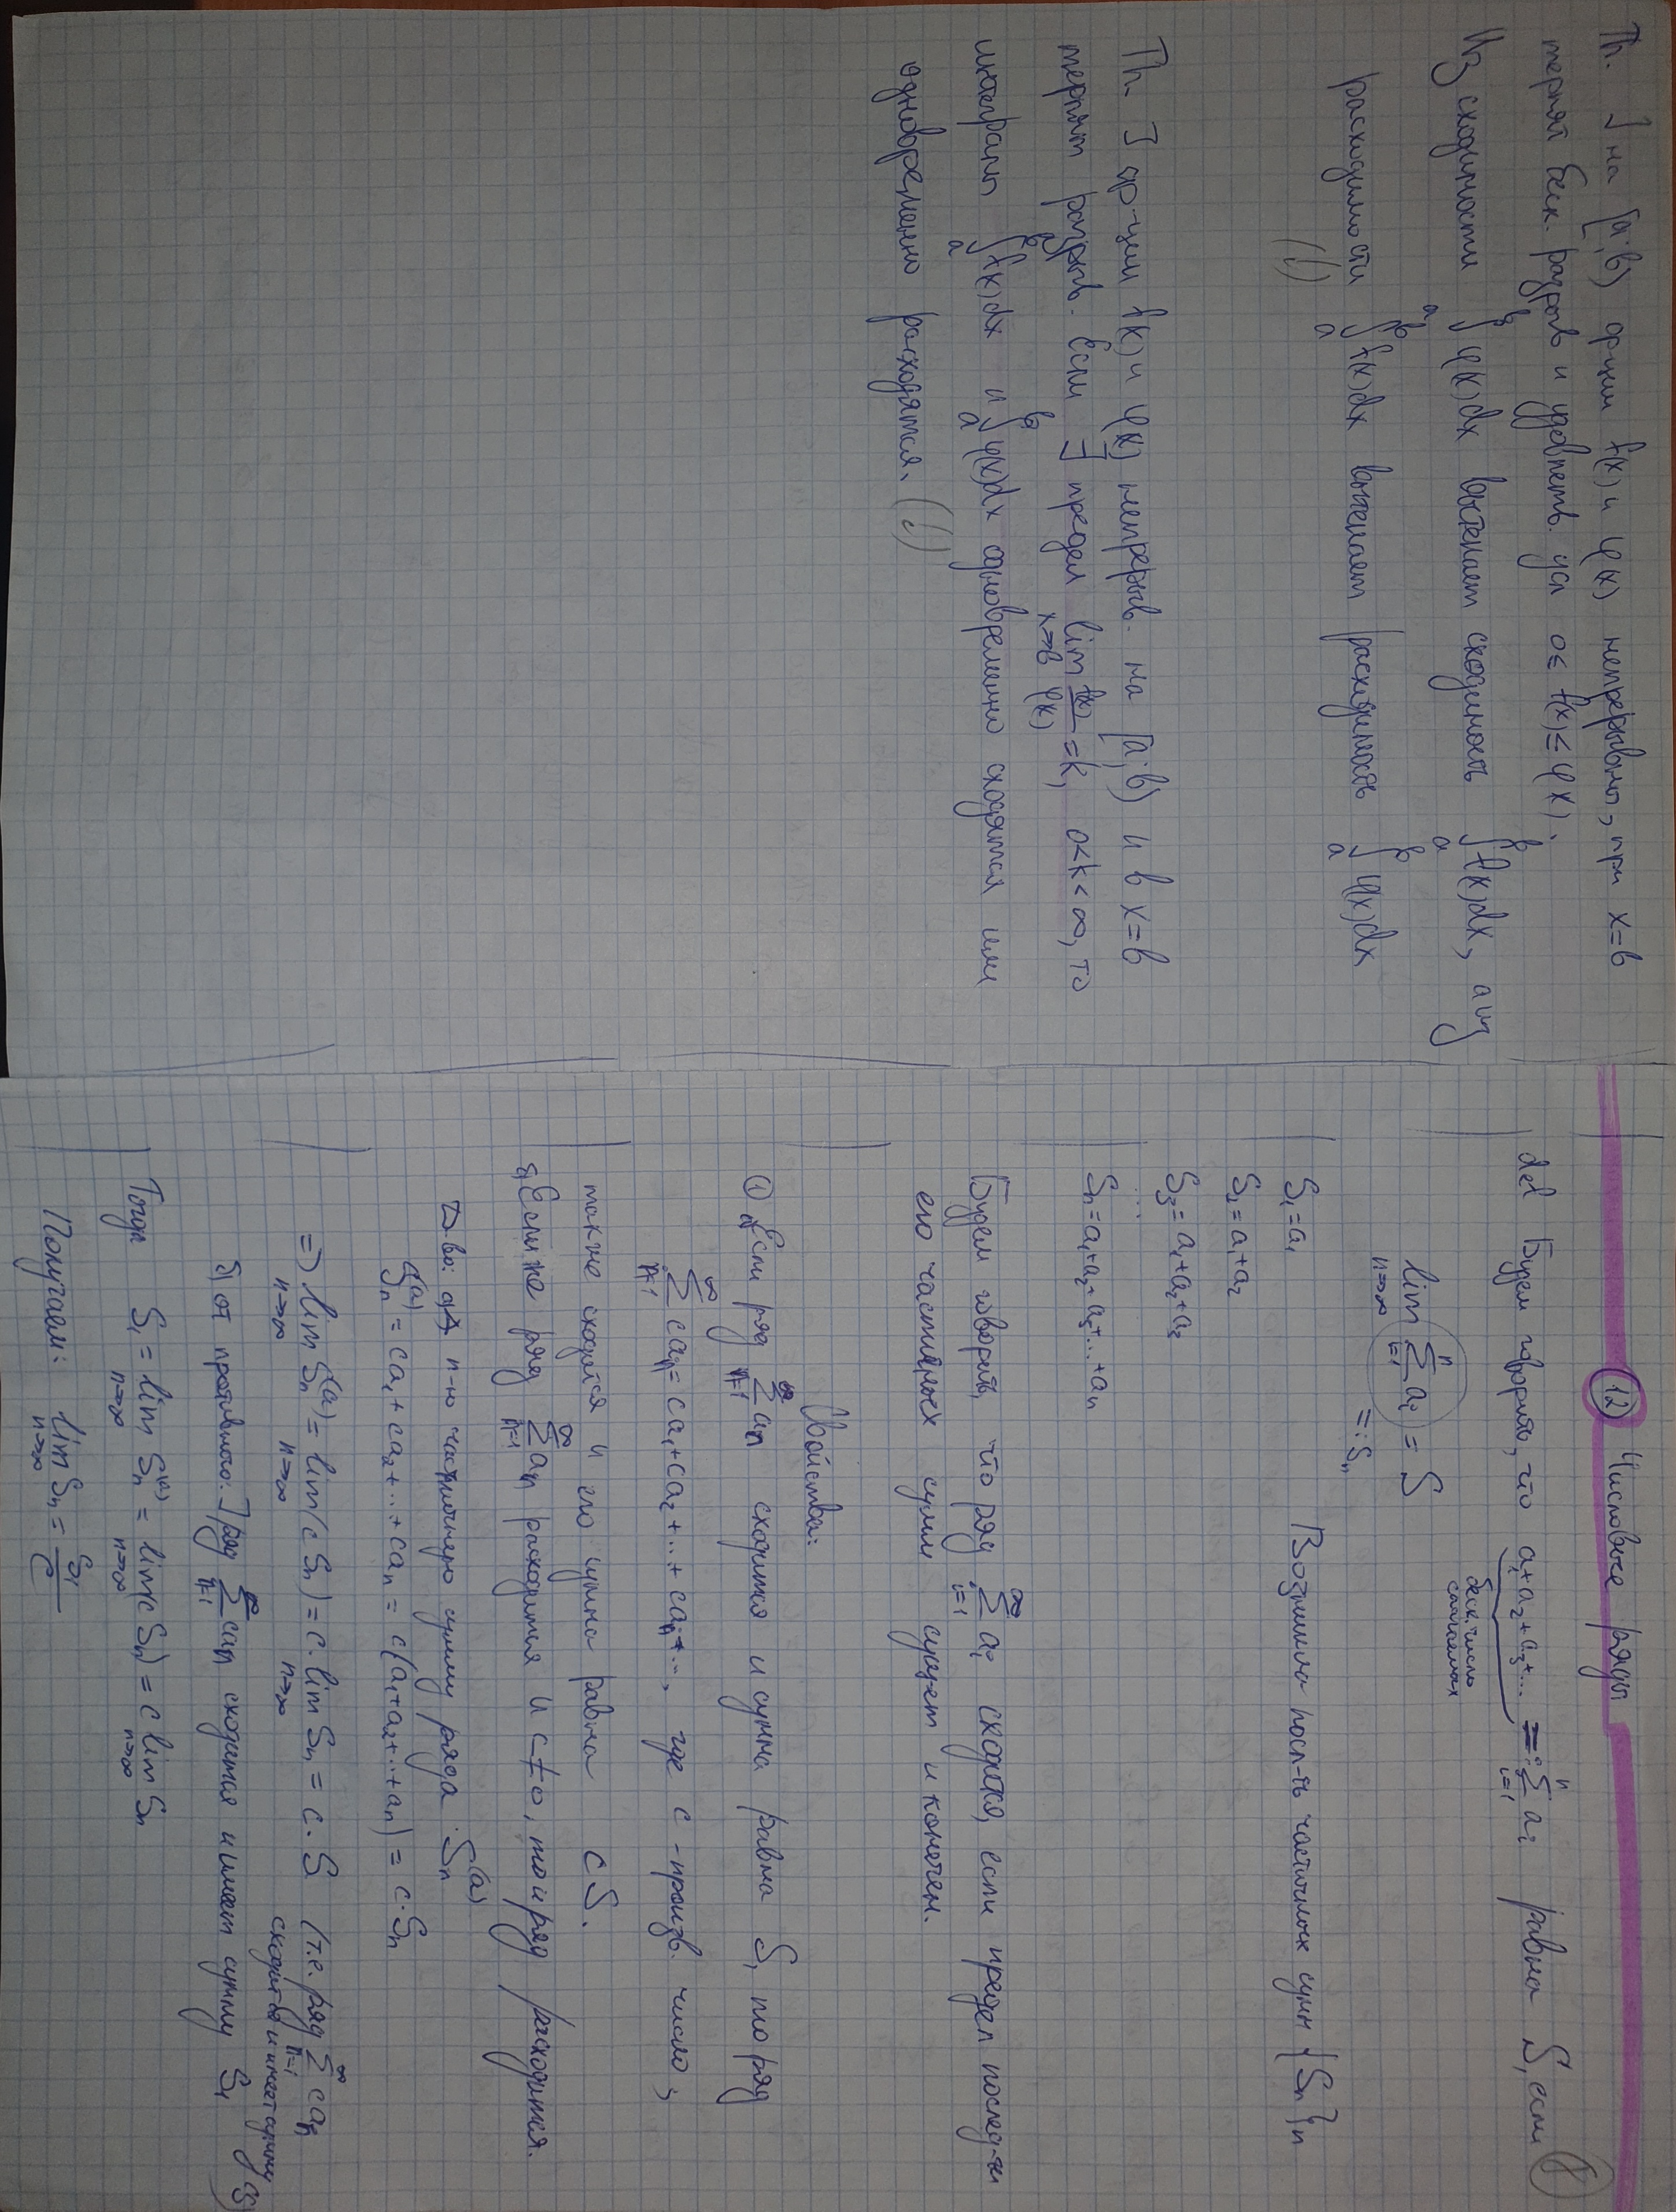 Th. ] на [a;b) ф-ции f(x) и φ(x) непрерывны, при x=b
терпят беск. разрыв и удовлетв. усл 0≤ f(x) ≤ φ(x).
Из сходимости ∫ₐᵇ φ(x)dx вытекает сходимость ∫ₐᵇ f(x)dx, а из
расходимости ∫ₐᵇ f(x)dx вытекает расходимость ∫ₐᵇ φ(x)dx
Th. ] ф-ции f(x) и φ(x) непрерыв. на [a;b) и в x=b
терпят разрыв. Если ∃ предел lim x→b f(x)/φ(x) = k, 0<k<∞, то
интегралы ∫ₐᵇ f(x)dx и ∫ₐᵇ φ(x)dx одновременно сходятся или
одновременно расходятся.
⑫ Числовые ряды
def Будем говорить, что a₁+a₂+a₃+... =: Σ i=1 aᵢ равна S, если
беск. число
слагаемых
lim n→∞ Σ i=1 n aᵢ = S
=: Sₙ
S₁=a₁ Возникла посл-ть частичных сумм {Sₙ}n
S₂=a₁+a₂
S₃=a₁+a₂+a₂
...
Sₙ=a₁+a₂+a₃+...+aₙ
Будем говорить, что ряд Σ i=1 ∞ aᵢ сходится, если предел послед-ти
его частичных сумм существует и конечен.
Свойства:
① Если ряд Σ n=1 ∞ aₙ сходится и сумма равна S, то ряд
Σ n=1 ∞ caₙ = ca₁+ca₂+...+caₙ+..., где c - произв. число,
также сходится и его сумма равна cS.
Если же ряд Σ n=1 ∞ aₙ расходится и c≠0, то и ряд расходится.
D-во: n-ю частичную сумму ряда Sₙ⁽ᵃ⁾
Sₙ⁽ᵃ⁾ = ca₁+ca₂+...+caₙ = c(a₁+a₂+...+aₙ) = c·Sₙ
⇒ lim n→∞ Sₙ⁽ᵃ⁾ = lim n→∞ (cSₙ) = c·lim n→∞ Sₙ = c·S (т.е. ряд Σ n=1 ∞ caₙ
сходится и имеет сумму cS)
от противного. ] ряд Σ n=1 ∞ caₙ сходится и имеет сумму S₁
Тогда S₁ = lim n→∞ Sₙ⁽ᵃ⁾ = lim n→∞ (cSₙ) = c lim n→∞ Sₙ
Получаем: lim n→∞ Sₙ = S₁/c